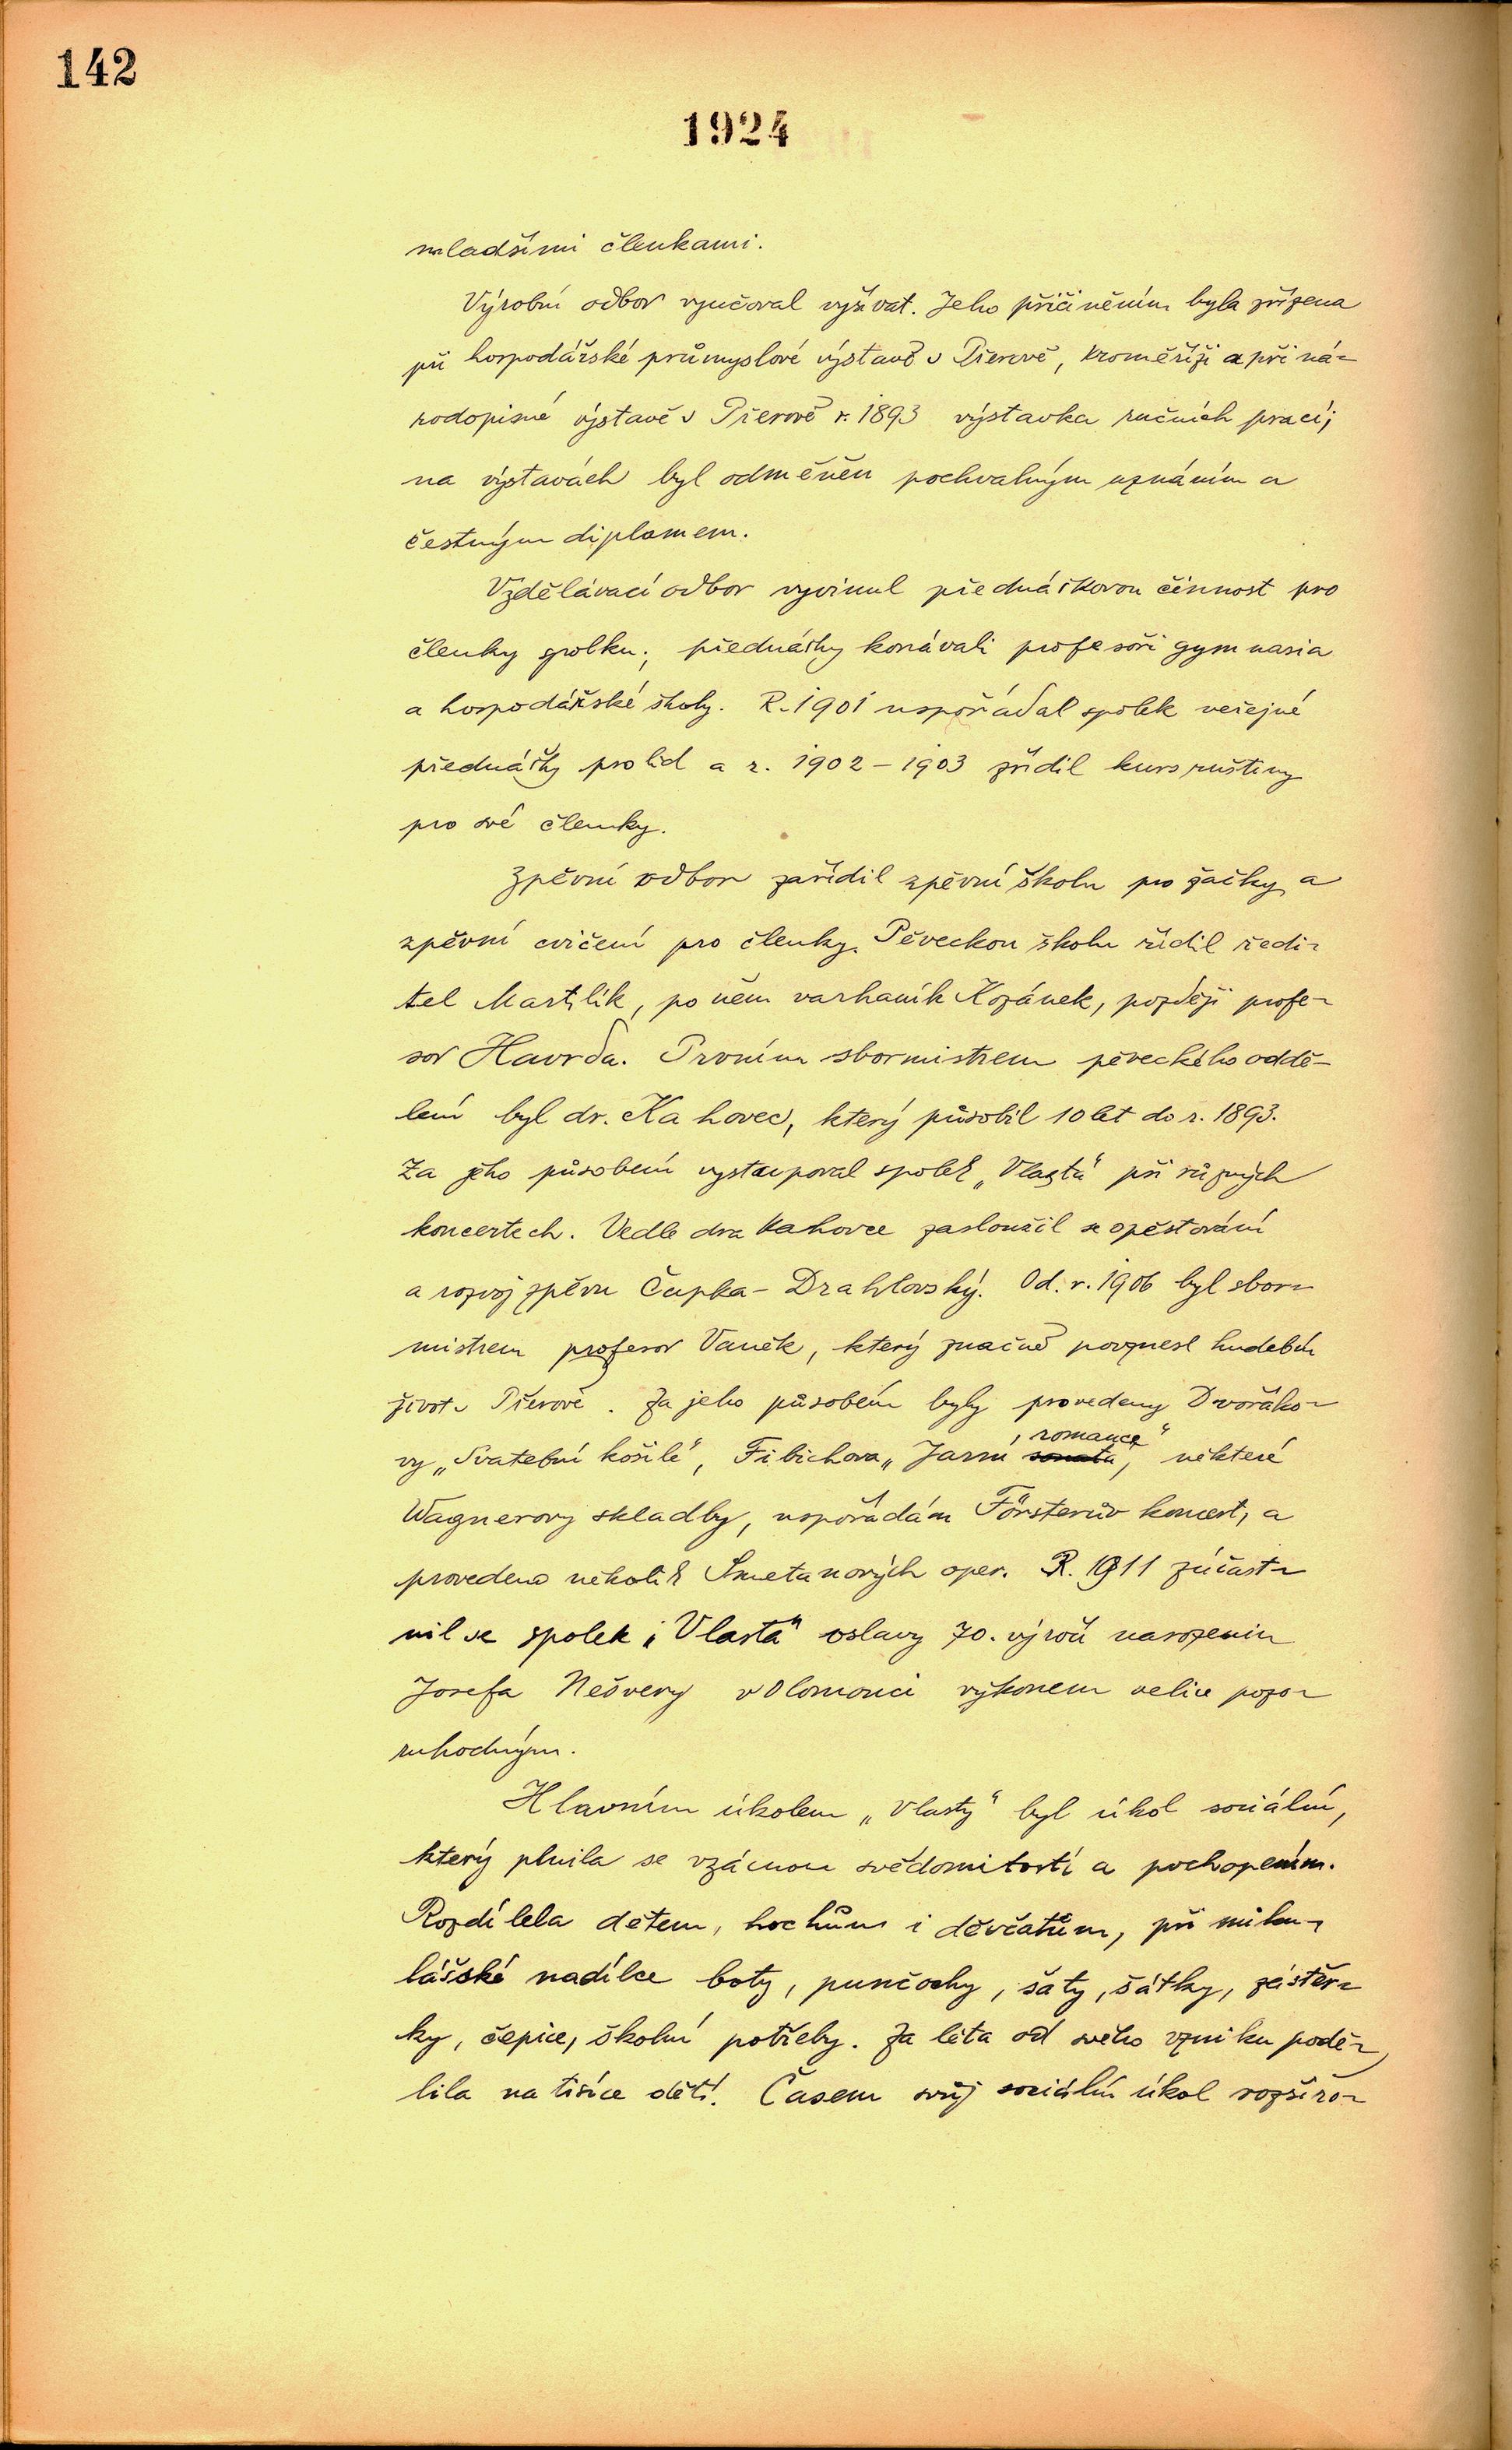 142
1924
mladšími členkami.
Výrobní odbor vyučoval vyšívat. Jeho přičiněním byla zřízena
při hospodářské průmyslové výstavě v Přerově, Kroměříži a při ná-
rodopisné výstavě v Přerově r. 1893 výstavka ručních prací;
na výstavách byl odměněn pochvalným uznáním a
čestným diplomem.
Vzdělávací odbor vyvinul přednáškovou činnost pro
členky spolku; přednášky konávali profesoři gymnasia
a hospodářské školy. R. 1901 uspořádal spolek veřejné
přednášky pro lid a r. 1902 - 1903 zřídil kurs ruštiny
pro své členky.
Zpěvní odbor zařídil zpěvní školu pro žačky a
zpěvní cvičení pro členky. Pěveckou školu řídil ředi-
tel Martilík, po něm varhaník Kozánek, později profe-
sor Havrda. Prvním sbormistrem pěveckého oddě-
lení byl dr. Kahovec, který působil 10 let do r. 1893.
Za jeho působení vystupoval spolek „Vlasta" při různých
koncertech. Vedle dra Kahovce zasloužil se o pěstování
a rozvoj zpěvu Čapka - Drahlovský. Od. r. 1906 byl sbor-
mistrem profesor Vaněk, který značně povznesl hudební
život v Přerově. Za jeho působení byly provedeny Dvořáko-
vy „Svatební košile", Fibichova „Jarní sonata, romance" některé
Wagnerovy skladby, uspořádán Försterův koncert, a
provedeno několik Smetanových oper. R. 1911 zúčast-
nil se spolek „Vlasta" oslavy 70. výročí narozenin
Josefa Nešvery v Olomouci výkonem velice pozo-
ruhodným.
Hlavním úkolem „Vlasty" byl úkol sociální,
který plnila se vzácnou svědomitostí a pochopením.
Rozdílela dětem, hochům i děvčatům, při miku-
lášské nadílce boty, punčochy, šaty, šátky, zástěr-
ky, čepice, školní potřeby. Za léta od svého vzniku podě-
lila na tisíce dětí. Časem svůj sociální úkol rozšiřo-